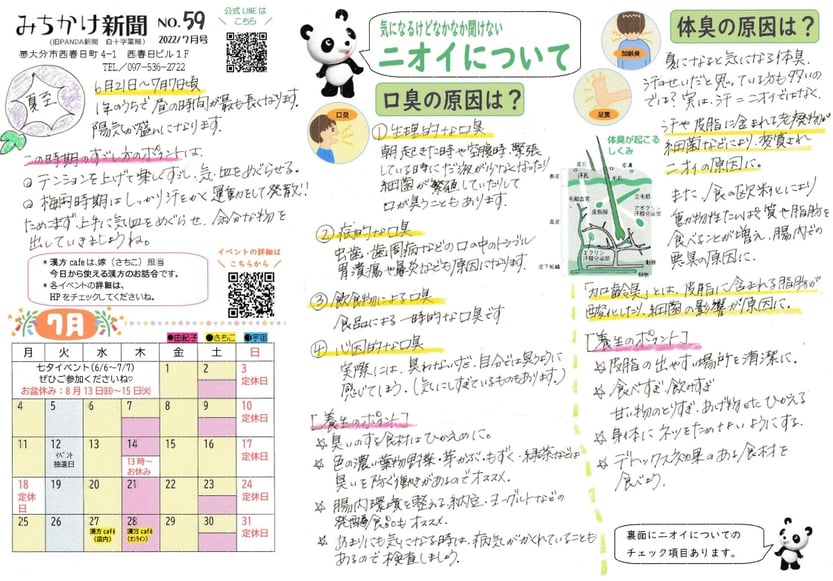 みちかけ新聞 NO.59
(旧PANDA新聞 白十字薬局) 2022/7月号
大分市西春日町4-1 西春日ビル1F
TEL/097-536-2722
公式LINEは
こちら
夏至
6月21日〜7月7日頃
1年のうちで昼の時間が最も長くなります。
陽気が盛んになります。
この時期のすごし方のポイントは、
テンションを上げて楽しくすごし、気・血をめぐらせる。
梅雨時期はしっかり汗をかく運動をして発散!!
ためまず上手に気血をめぐらせ、余分な物を
出していきましょうね。
*漢方cafeは、嫁(さちこ)担当
今日から使える漢方のお話会です。
*各イベントの詳細は、
HPをチェックしてくださいね。
イベントの詳細は
こちらから
7月
●由紀子 ●さちこ ●宇宙
月 火 水 木 金 土 日
七夕イベント(6/6〜7/7)
ぜひご参加くださいね♡
お盆休み：8月13日(日)〜15日(火)
1 2 3 定休日
4 5 6 7 8 9 10 定休日
11 12 イベント抽選日 13 14 13時〜お休み 15 16 17 定休日
18 定休日 19 20 21 22 23 24 定休日
25 26 27 漢方café(店内) 28 漢方café(オンライン) 29 30 31 定休日
気になるけどなかなか聞けない
ニオイについて
口臭の原因は？
口臭
①生理的な口臭
朝起きた時や空腹時、緊張
している時にだ液が少なくなったり
細菌が繁殖していたりして
口が臭うこともあります。
②病的な口臭
出歯・歯周病などの口の中のトラブル
胃潰瘍や鼻炎なども原因になります。
③飲食物による口臭
食品による一時的な口臭です
④心因的な口臭
実際には、臭わないが、自分では臭うように
感じてしまう。(気にしすぎているものもあります。)
[養生のポイント]
☆臭いのする食材はひかえめに。
☆色の濃い葉物野菜・芽かぶ・もずく・緑茶などは
臭いを防ぐ働きがあるのでオススメ。
☆腸内環境を整える納豆・ヨーグルトなどの
発酵食品もオススメ。
☆あまりにも気になる時は、病気がかくれていることも
あるので検査しましょう。
体臭の原因は？
加齢臭
足裏
夏になると気になる体臭。
汗のせいだと思っている方も多いの
では？実は、汗＝ニオイではなく、
汗や皮脂に含まれる老廃物が
細菌などにより、変質され
ニオイの原因に。
また、食の欧米化により
動物性たんぱく質や脂肪を
食べることが増え、腸内での
悪臭の原因に。
体臭が起こる
しくみ
表皮
真皮
皮下組織
汗孔
毛細血管
皮脂腺
立毛筋
アポクリン
汗腺分泌部
エクリン
汗腺分泌部
動脈
静脈
「加齢臭」とは、皮脂に含まれる脂肪が
酸化したり、細菌の影響が原因に。
[養生のポイント]
☆皮脂の出やすい場所を清潔に。
☆食べすぎ・飲みすぎ
甘い物のとりすぎ・あげ物などひかえる
☆身体にネツをためせないようにする。
☆デトックス効果のある食材を
食べよう。
裏面にニオイについての
チェック項目あります。